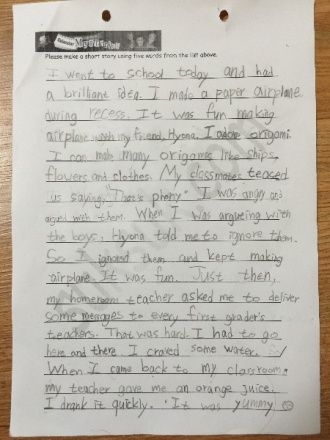 Please make a short story using five words from the list above.
I went to school today and had
a brilliant idea. I made a paper airplane
during recess. It was fun making
airplane with my friend, Hyona. I adore origami.
I can make many origamis like ships,
flowers and clothes. My classmates teased
us saying, "That's pheny" I was angry and
agued with them. When I was argueing with
the boys, Hyona told me to ignore them.
So I ignored them and kept making
airplane. It was fun. Just then,
my homeroom teacher asked me to deliver
some messages to every first grader's
teachers. That was hard. I had to go
here and there. I craved some water.
When I came back to my classroom,
my teacher gave me an orange juice.
I drank it quickly. It was yummy